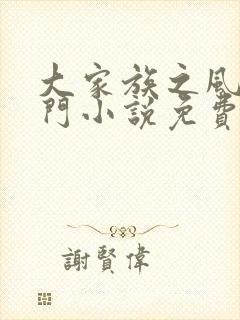 大家族之風
門小說免費
謝賢偉